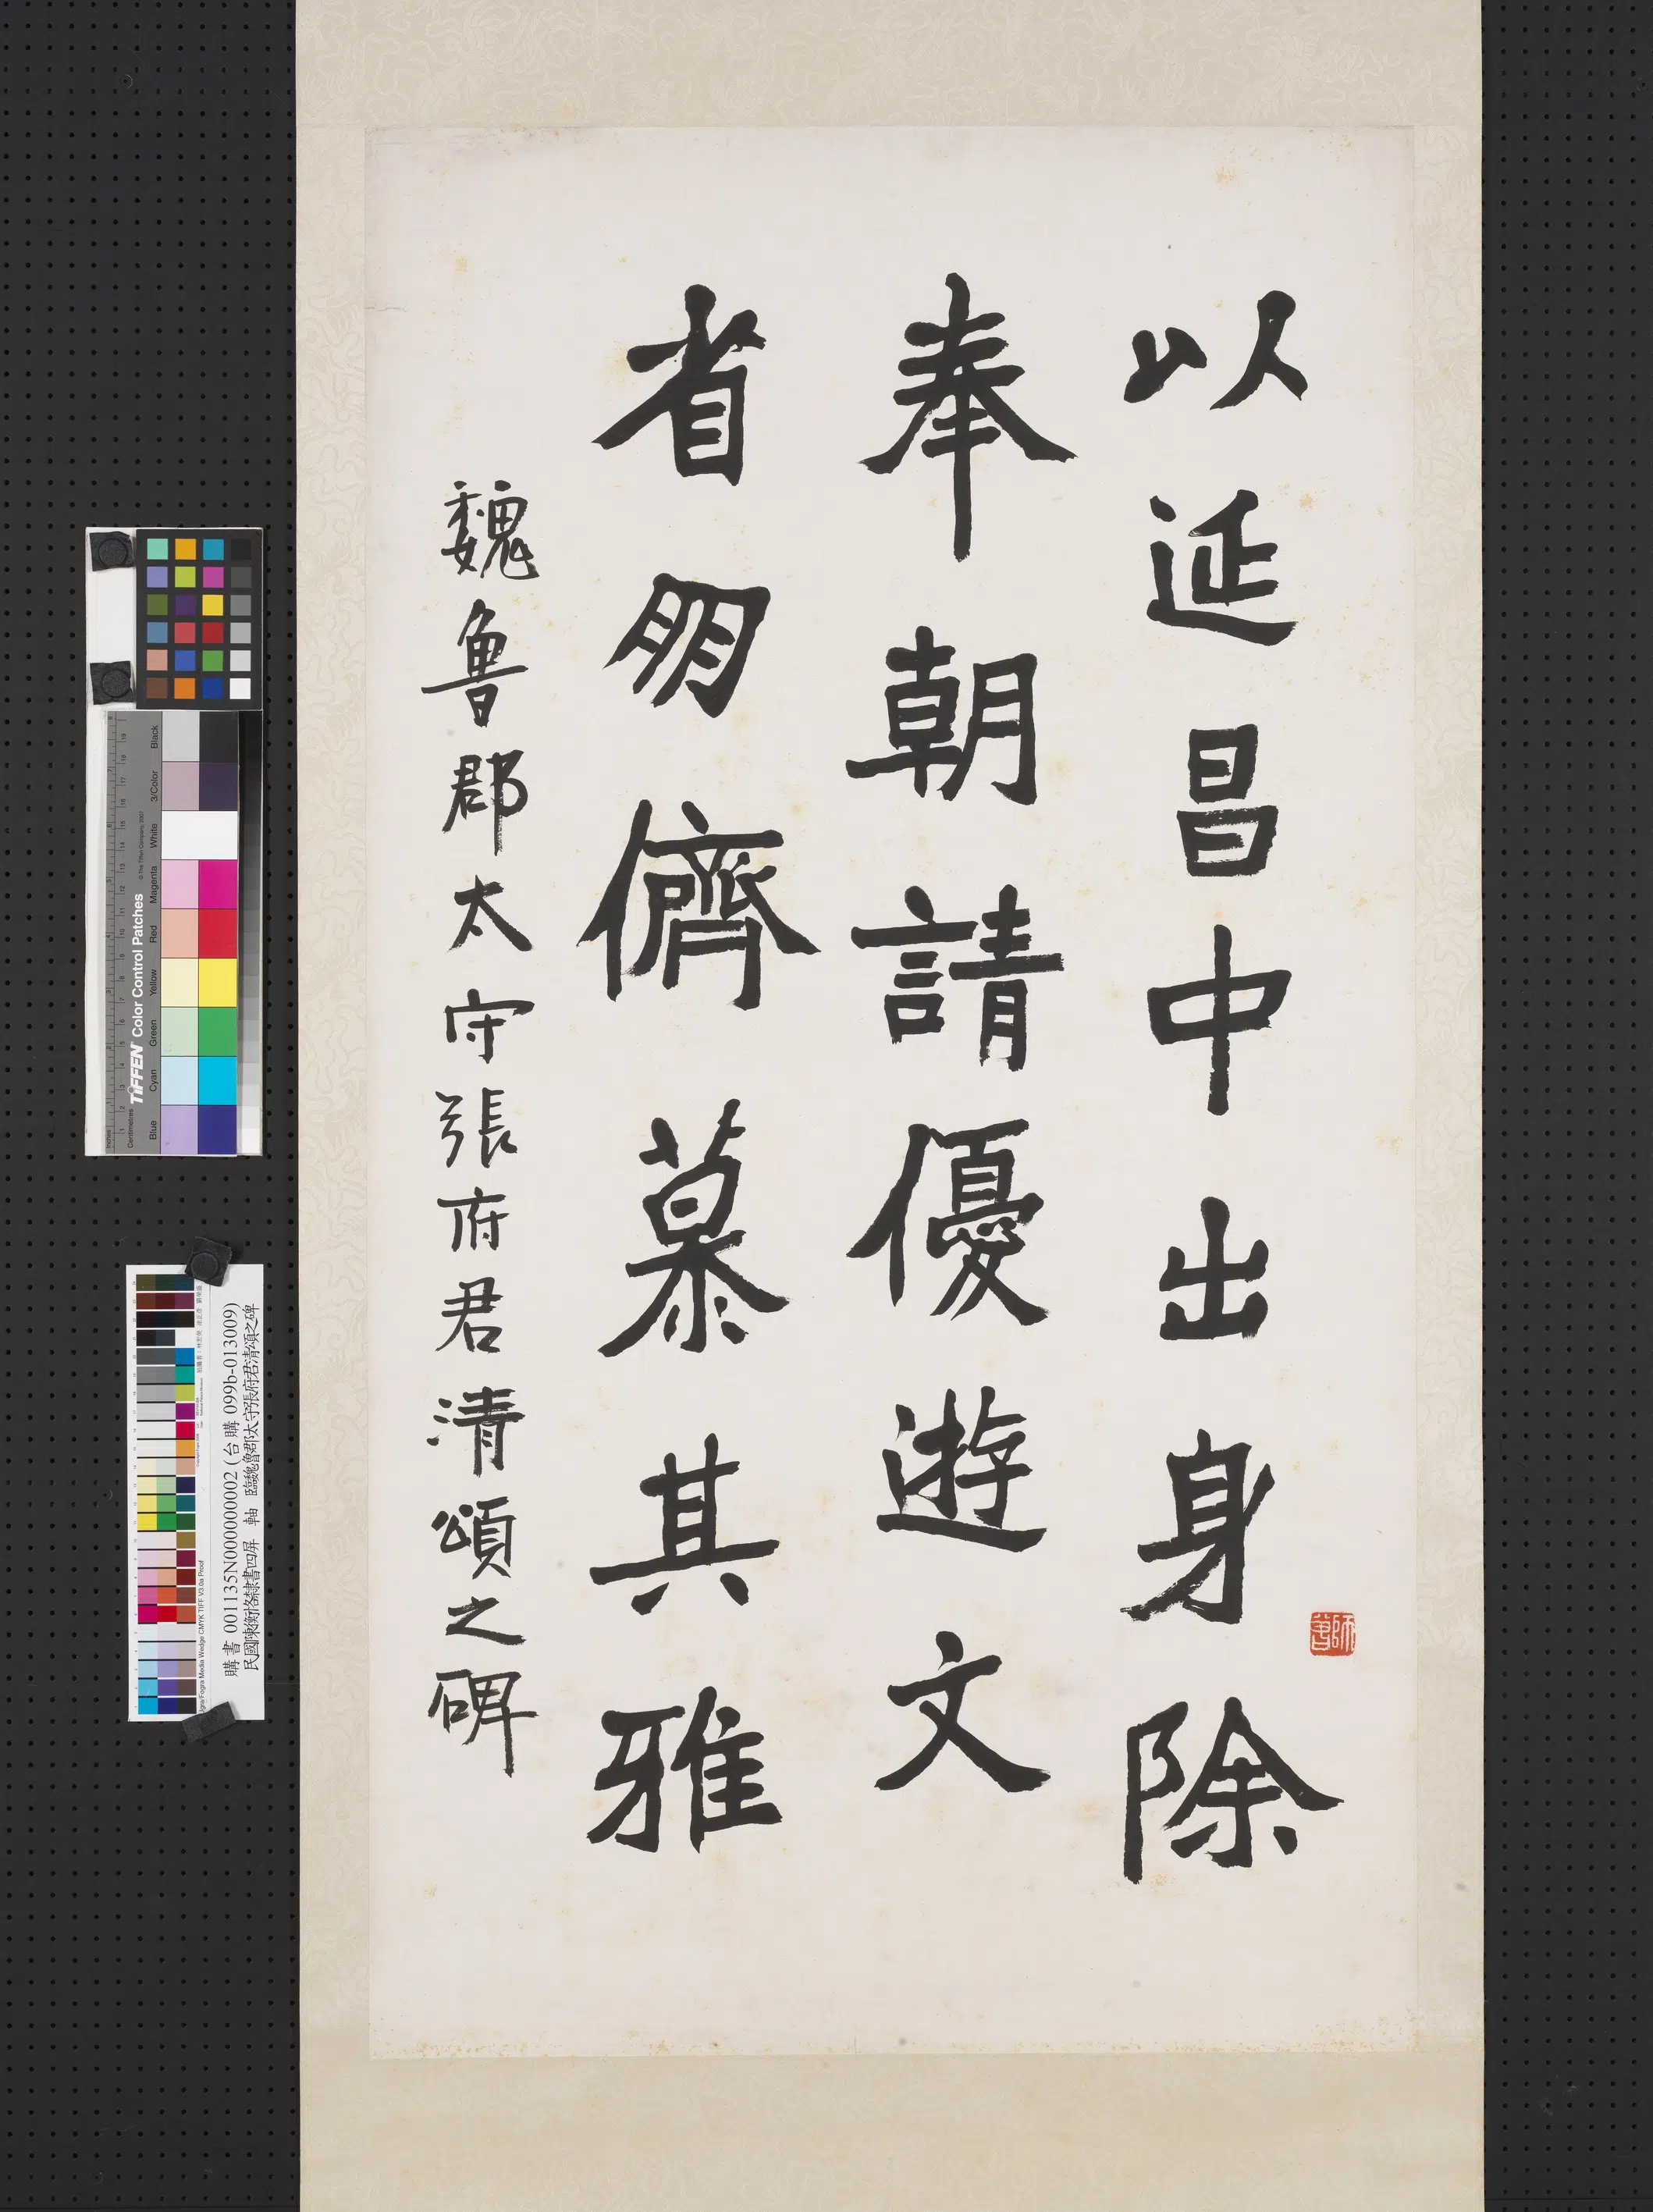 以延昌中出身除
奉朝請優遊文
省朋儕慕其雅
魏魯郡太守張府君清頌之碑
師曾
購書 001135N000000002 (台購 099b-013009)
民國陳衡恪隸書四屏 軸 臨魏魯郡太守張府君清頌之碑
TIFFEN Color Control Patches
© The Tiffen Company, 2007
Centimetres
Inches
Blue Cyan Green Yellow Red Magenta White 3/Color Black
Ugra/Fogra Media Wedge CMYK TIFF V3.0a Proof